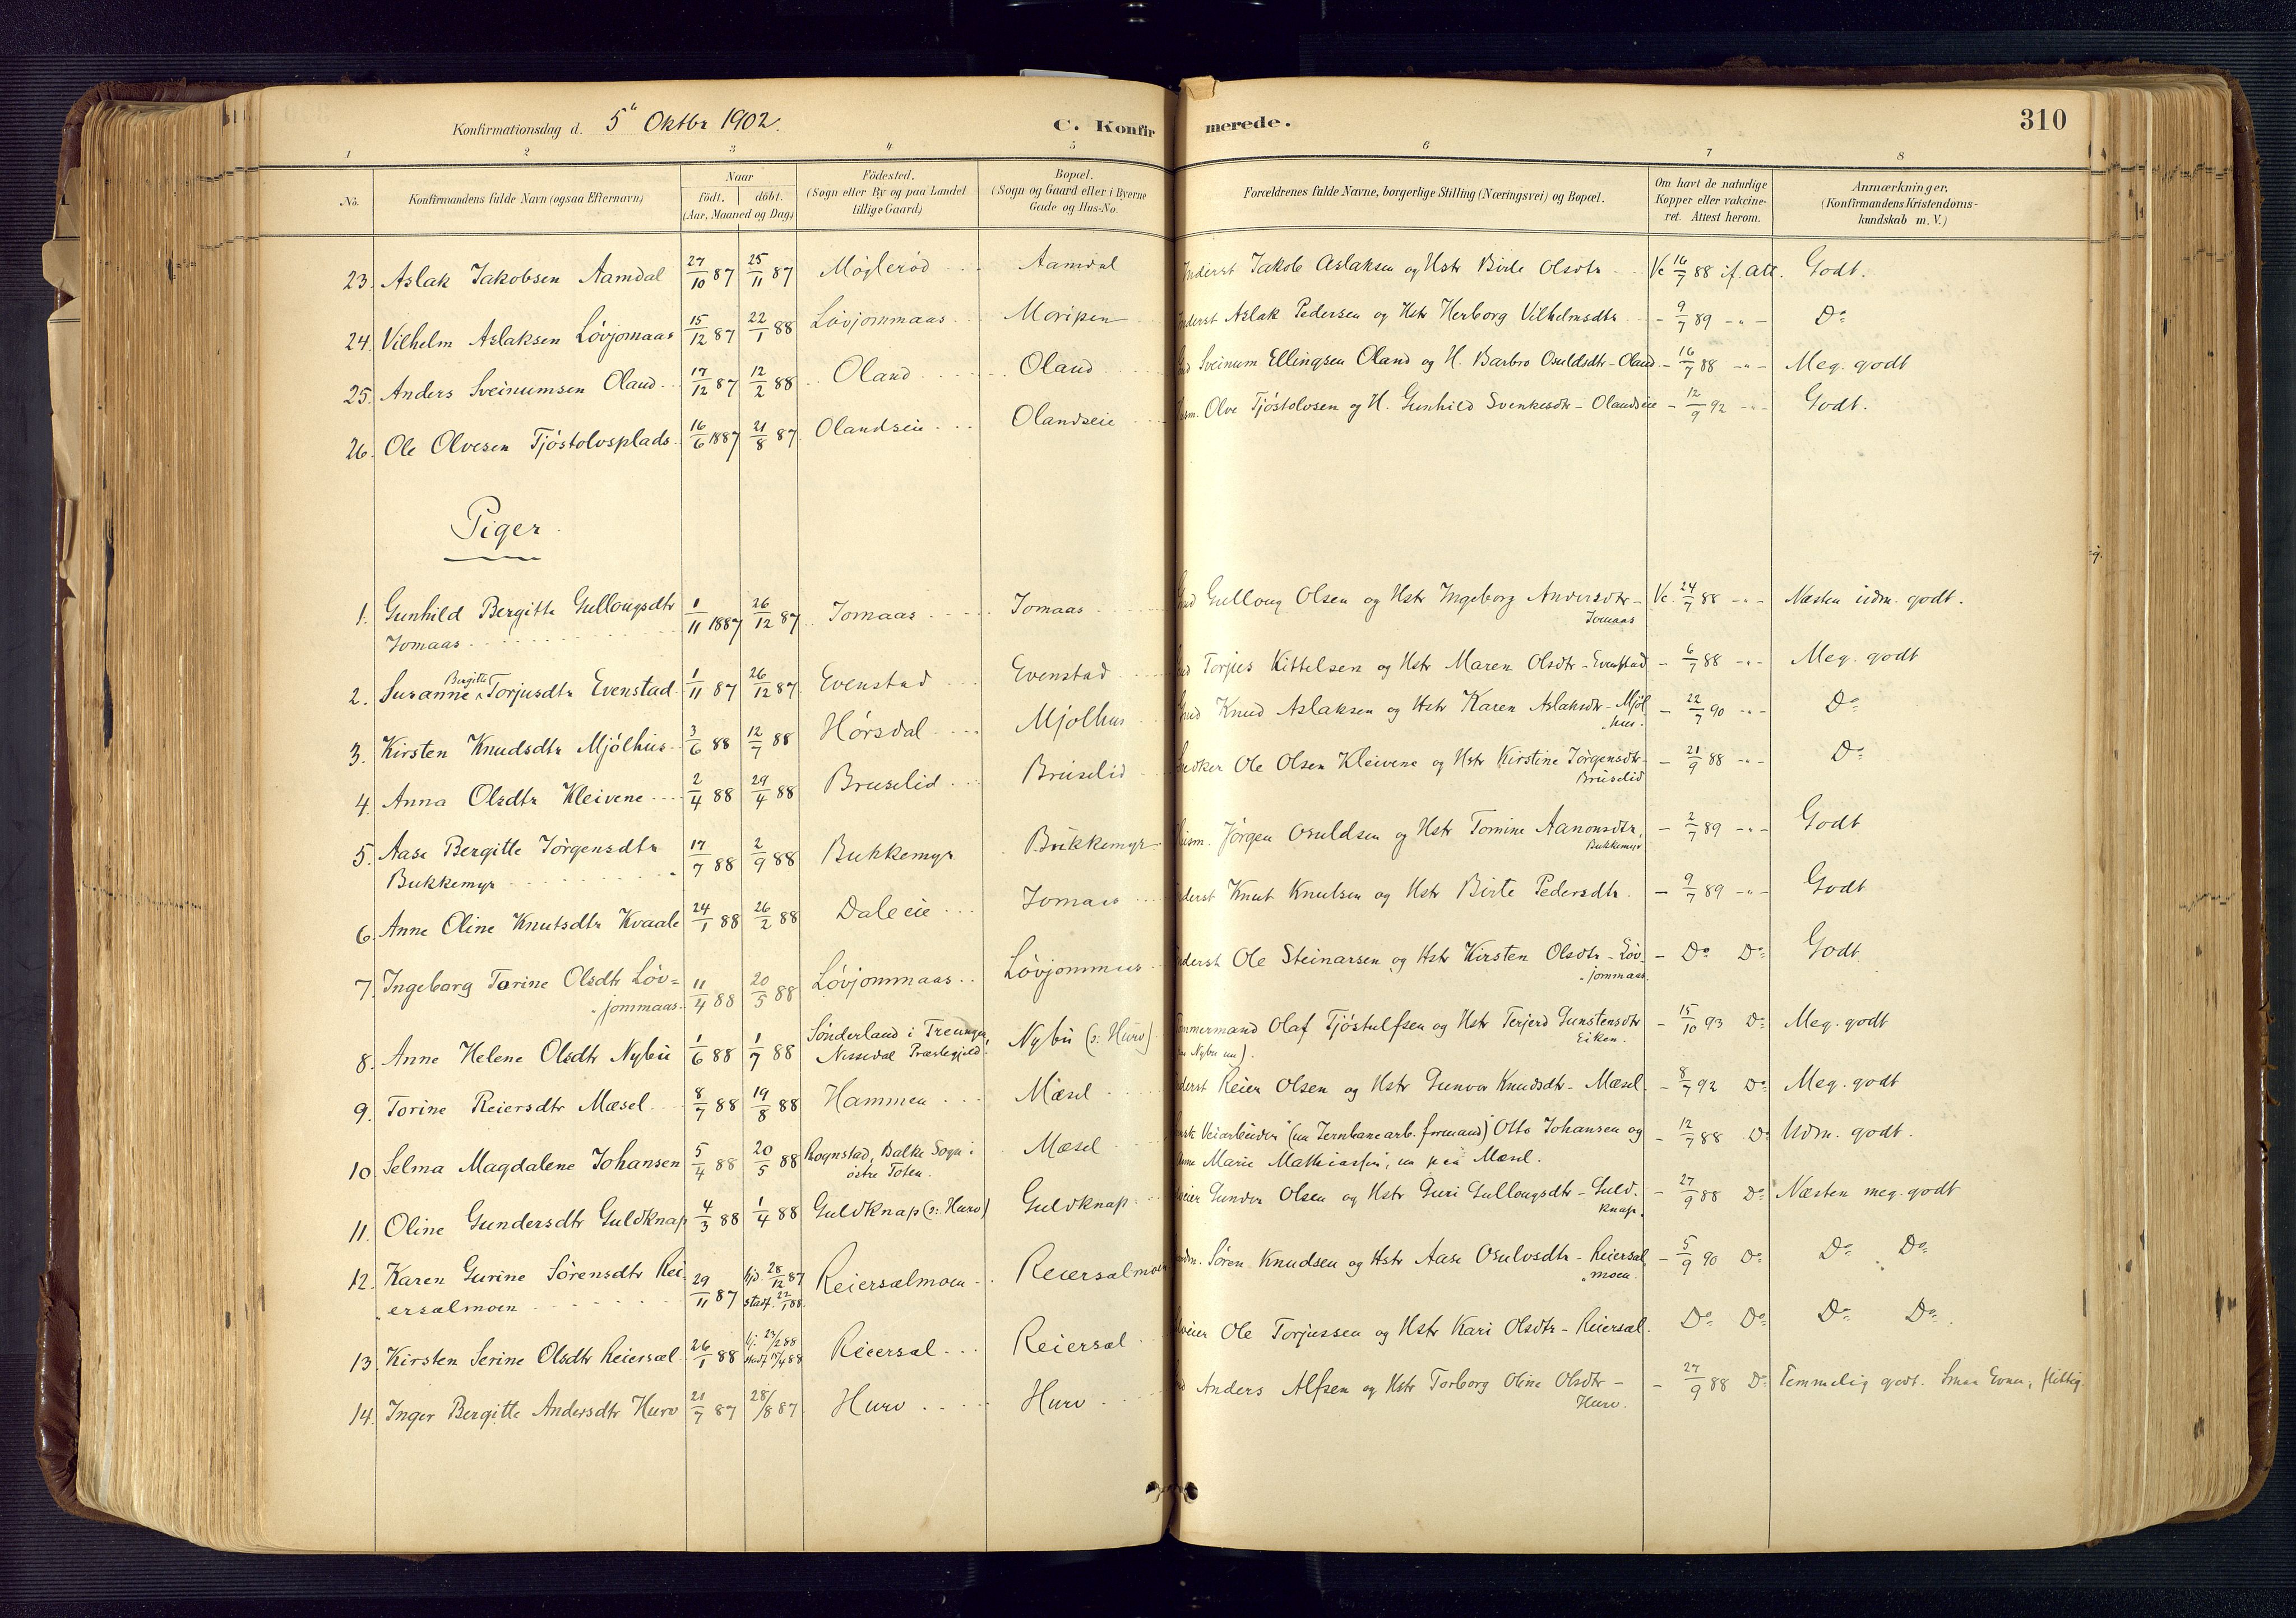 Konfirmationsdag d. 5" Oktbr 1902. C. Konfirmerede. 310
1 2 3 4 5 6 7 8
No. Konfirmandens fulde Navn (ogsaa Efternavn) Naar født. døbt. (Aar, Maaned og Dag) Fødested. (Sogn eller By og paa Landet tillige Gaard) Bopæl. (Sogn og Gaard eller i Byerne Gade og Hus-No. Forældrenes fulde Navne, borgerlige Stilling (Næringsvei) og Bopæl. Om havt de naturlige Kopper eller vakcineret. Attest herom. Anmærkninger. (Konfirmandens Kristendomskundskab m. V.)
23. Aslak Jakobsen Aamdal 27/10 87 25/11 87 Møglerød Aamdal Inderst Jakob Aslaksen og Hstr Birte Olsdtr Vc 16/7 88 if. att. Godt.
24. Vilhelm Aslaksen Løvjomaas 15/12 87 22/1 88 Løvjommaas Moripen Inderst Aslak Pedersen og Hstr Herborg Vilhelmsdtr - 9/7 89 -"- Do
25. Anders Sveinumsen Oland 17/12 87 12/2 88 Oland Oland Sveinum Ellingsen Oland og H. Barbro Osuldsdtr - Oland - 16/7 88 -"- Meg. godt
26. Ole Olvesen Tjøstolvsplads 16/6 1887 21/8 87 Olandseie Olandseie Husm. Olve Tjøstolvsen og H. Gunhild Svenkesdtr - Olandseie - 12/9 92 -"- Godt.
Piger
1. Gunhild Bergitte Gullougsdtr 1/11 1887 26/12 87 Jomaas Jomaas Gulloug Olsen og Hstr Ingeborg Andersdtr - Vc. 24/7 88 -"- Næsten udm. godt.
Jomaas Jomaas
2. Susanne Bergitte Torjusdtr Evenstad 1/11 87 26/12 87 Evenstad Evenstad Torjus Kittelsen og Hstr Maren Olsdtr - Evenstad - 6/7 88 -"- Meg. godt
3. Kirsten Knudsdtr Mjølhus 3/6 88 12/7 88 Hørsdal Mjølhus Knud Aslaksen og Hstr Karen Aslaksdtr - Mjøl - 22/7 90 -"- Do
hus.
4. Anna Olsdtr Kleivene 2/4 88 29/4 88 Bruselid Bruselid Ole Olsen Kleivene og Hstr Kirstine Jørgensdtr - 21/9 88 -"- Do
Bruselid
5. Aase Bergitte Jørgensdtr 17/7 88 2/9 88 Bukkemyr Bukkemyr Husm. Jørgen Osuldsen og Hstr Tomine Aanonsdtr, - 2/7 89 -"- Godt
Bukkemyr Bukkemyr
6. Anne Oline Knutsdtr Kvaale 24/1 88 26/2 88 Daleeie Jomaas Inderst Knut Knutsen og Hstr Birte Pedersdtr. - 9/7 89 -"- Godt
7. Ingeborg Torine Olsdtr Løv= 11/4 88 20/5 88 Løvjommaas Løvjommaas Inderst Ole Steinarsen og Hstr Kirsten Olsdtr - Løv - Do Do Godt
jommaas jommaas
8. Anne Helene Olsdtr Nybu 1/6 88 1/7 88 Sønderland i Treungen Nissedal Præstegjeld. Nybu (ɔ: Hurv) Tømmermand Olaf Tjøstulfsen og Hstr Terjerd Gunstensdtr - 15/10 93 Do Meg. godt
Nybu nu). Eiken.
9. Torine Reiersdtr Mæsel 8/7 88 19/8 88 Hammen Mæsel Inderst Reier Olsen og Hstr Gunvor Knudsdtr - Mæsel - 8/7 92 Do Meg. godt
10. Selma Magdalene Johansen 5/4 88 20/5 88 Rognstad, Balke Sogn i østre Toten. Mæsel Veiarbeider (nu Jernbanearb. formand) Otto Johansen og - 12/7 88 Do Udm. godt.
Anne Marie Mathiassen, nu paa Mæsel.
11. Oline Gundersdtr Guldknap 4/3 88 1/4 88 Guldknap (ɔ: Hurv) Guldknap Gunder Olsen og Hstr Guri Gullougsdtr - Guld. - 27/9 88 Do Næsten meg. godt
knap.
12. Karen Gurine Sørensdtr Rei 29/11 87 hjd. 28/12 87 stadf. 22/1 88. Reiersælmoen Reiersælmoen Søren Knudsen og Hstr Aase Osulvsdtr - Reiersæl - 5/9 90 Do Do Do
ersælmoen moen.
13. Kirsten Serine Olsdtr Reiersæl 26/1 88 hj. 23/2 88 stadf 15/4 88 Reiersæl Reiersæl Ole Torjussen og Hstr Kari Olsdtr - Reiersæl. Do Do Do Do
14. Inger Bergitte Andersdtr Hurv 21/7 87 28/8 87 Hurv Hurv Anders Alfsen og Hstr Torborg Oline Olsdtr - - 27/9 88 Do Temmelig godt. Smaa Evner, flittig.
Hurv.